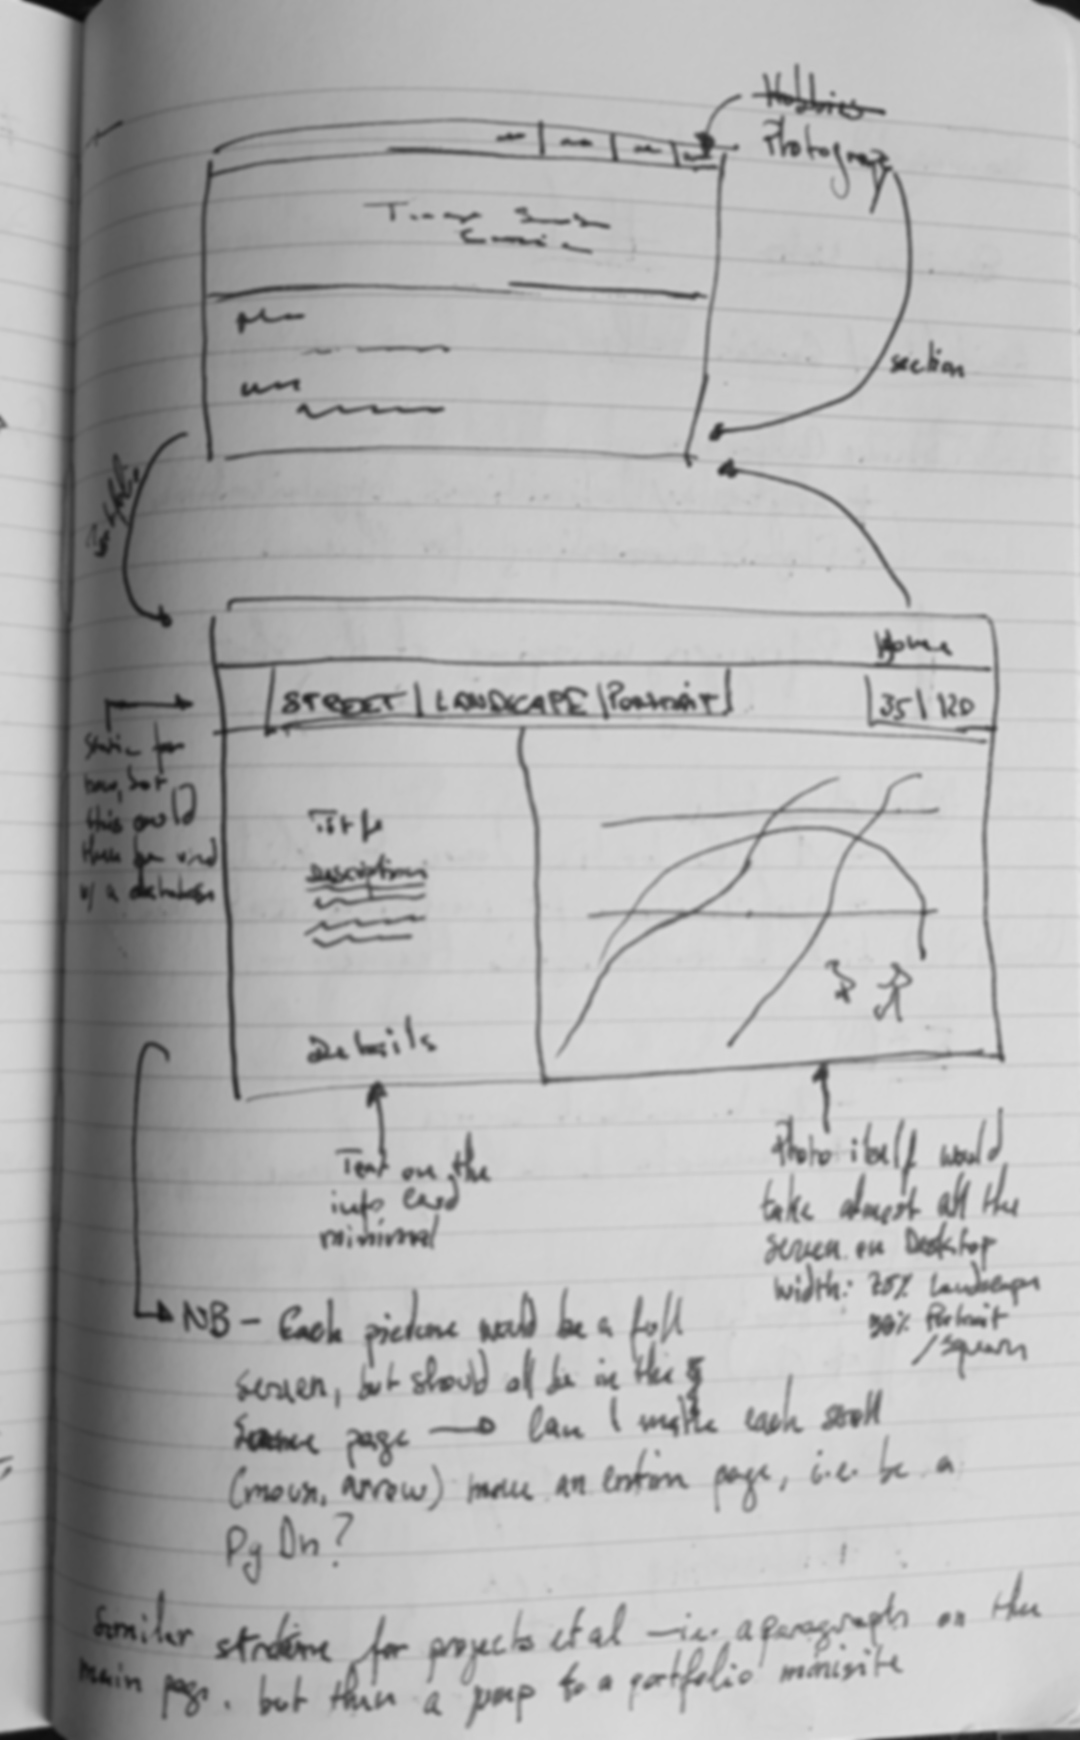 Hobbies
Photography
section
Home
STREET | LANDSCAPE | PORTRAIT
35 | 120
Static for
now, but
this could
w/ a database
Title
Description
Details
Text on the
info card
minimal
Photo itself would
take almost all the
screen on Desktop
width: 75% Landscape
50% Portrait
/Square
NB - Each picture would be a full
screen, but should all be in the
same page → Can I make each scroll
(mouse, arrow) move an entire page, i.e. be a
Pg Dn?
Similar structure for projects et al - i.e. a paragraph on the
main page, but then a jump to a portfolio minisite